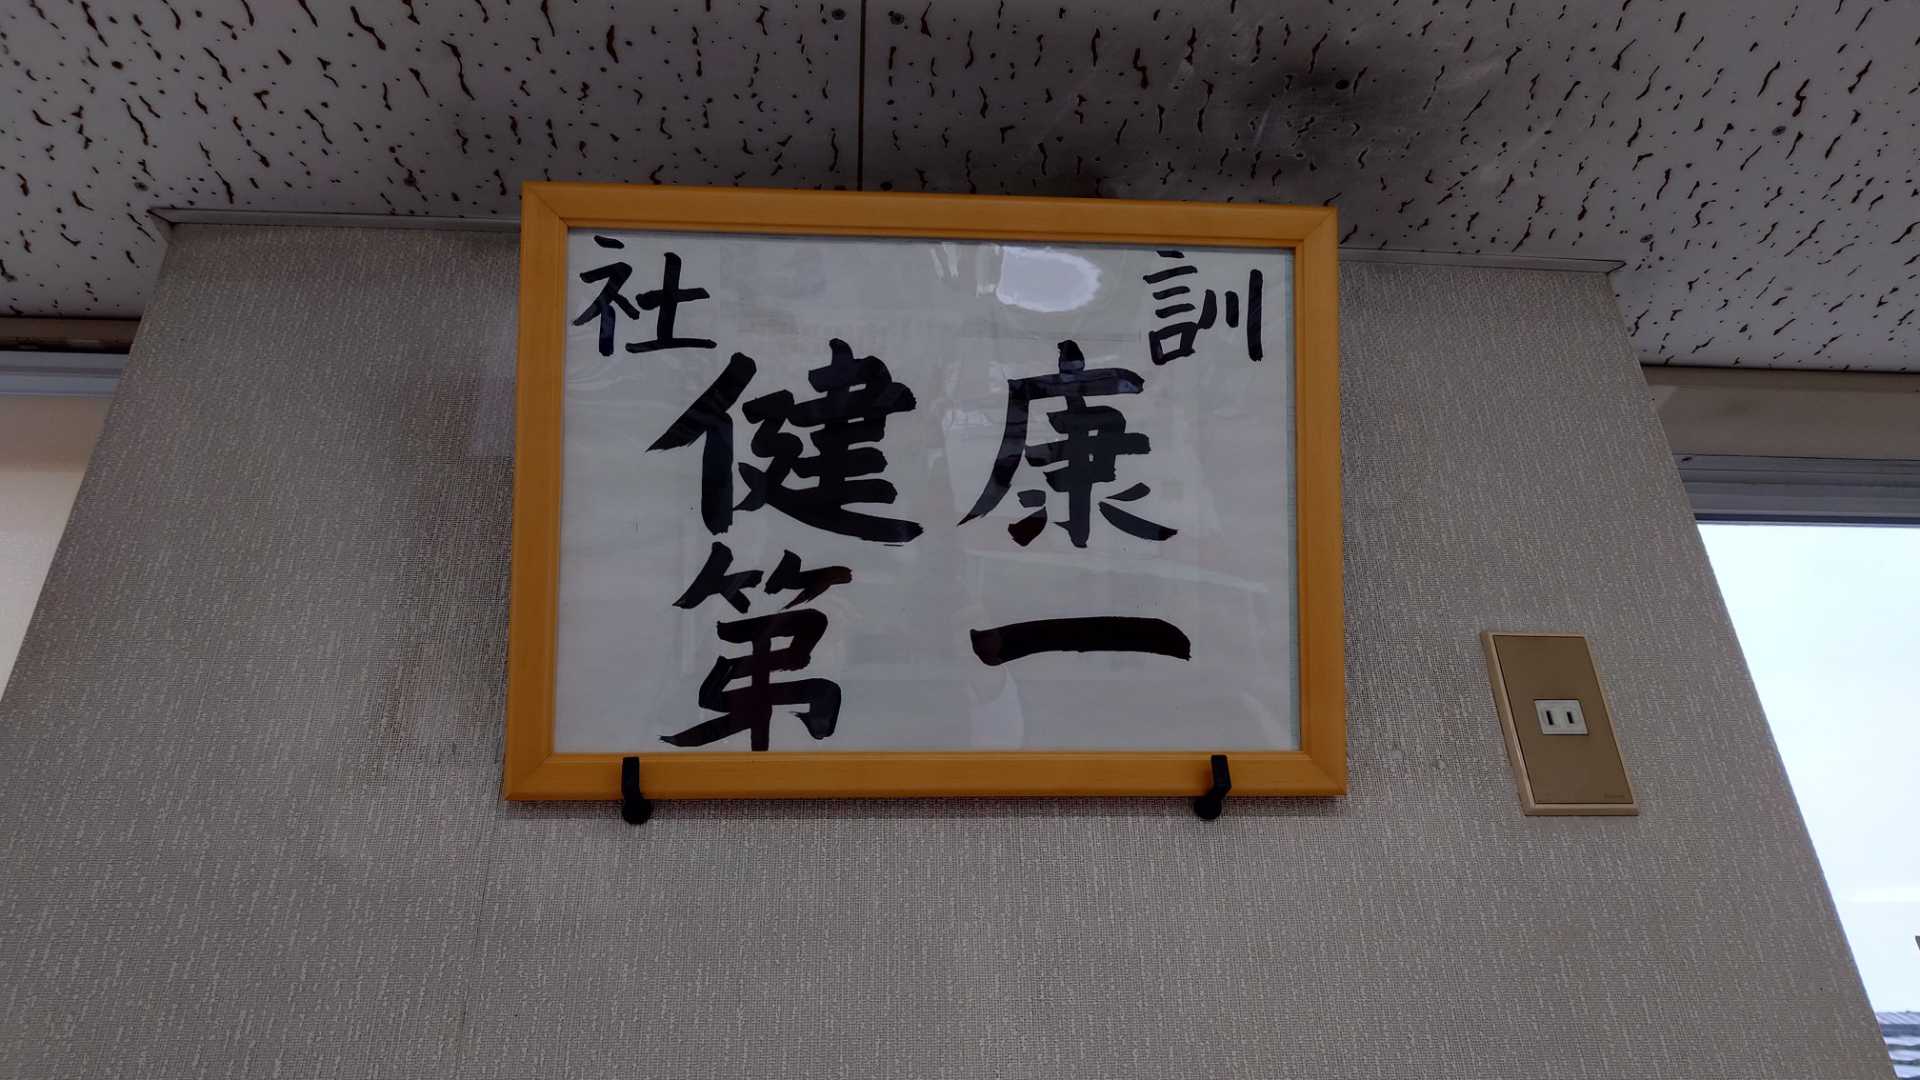 社訓
健康
第一